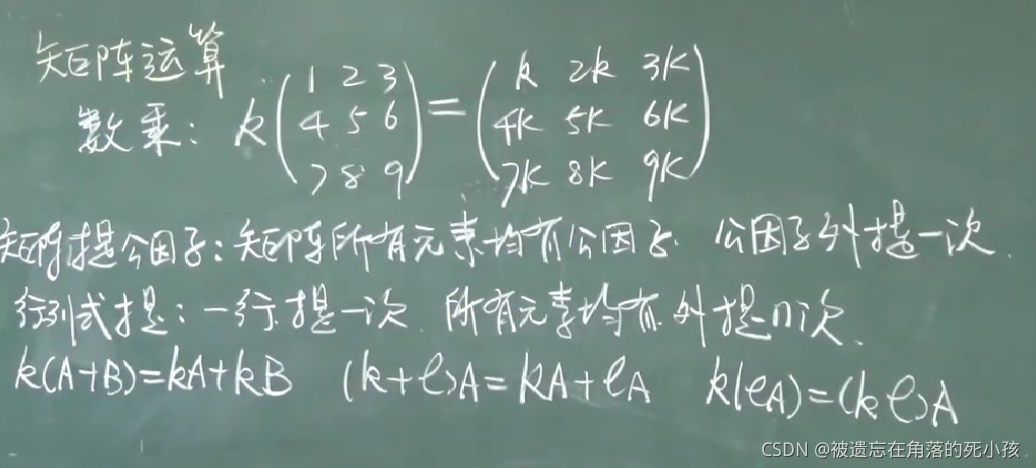 矩阵运算
数乘: k(1 2 3 = (k 2k 3k
4 5 6 4k 5k 6k
7 8 9) 7k 8k 9k)
矩阵提公因子:矩阵所有元素均有公因子. 公因子外提一次.
行列式提:一行提一次. 所有元素均有 外提n次.
k(A+B)=kA+kB (k+ℓ)A=kA+ℓA k(ℓA)=(kℓ)A
CSDN @被遗忘在角落的死小孩